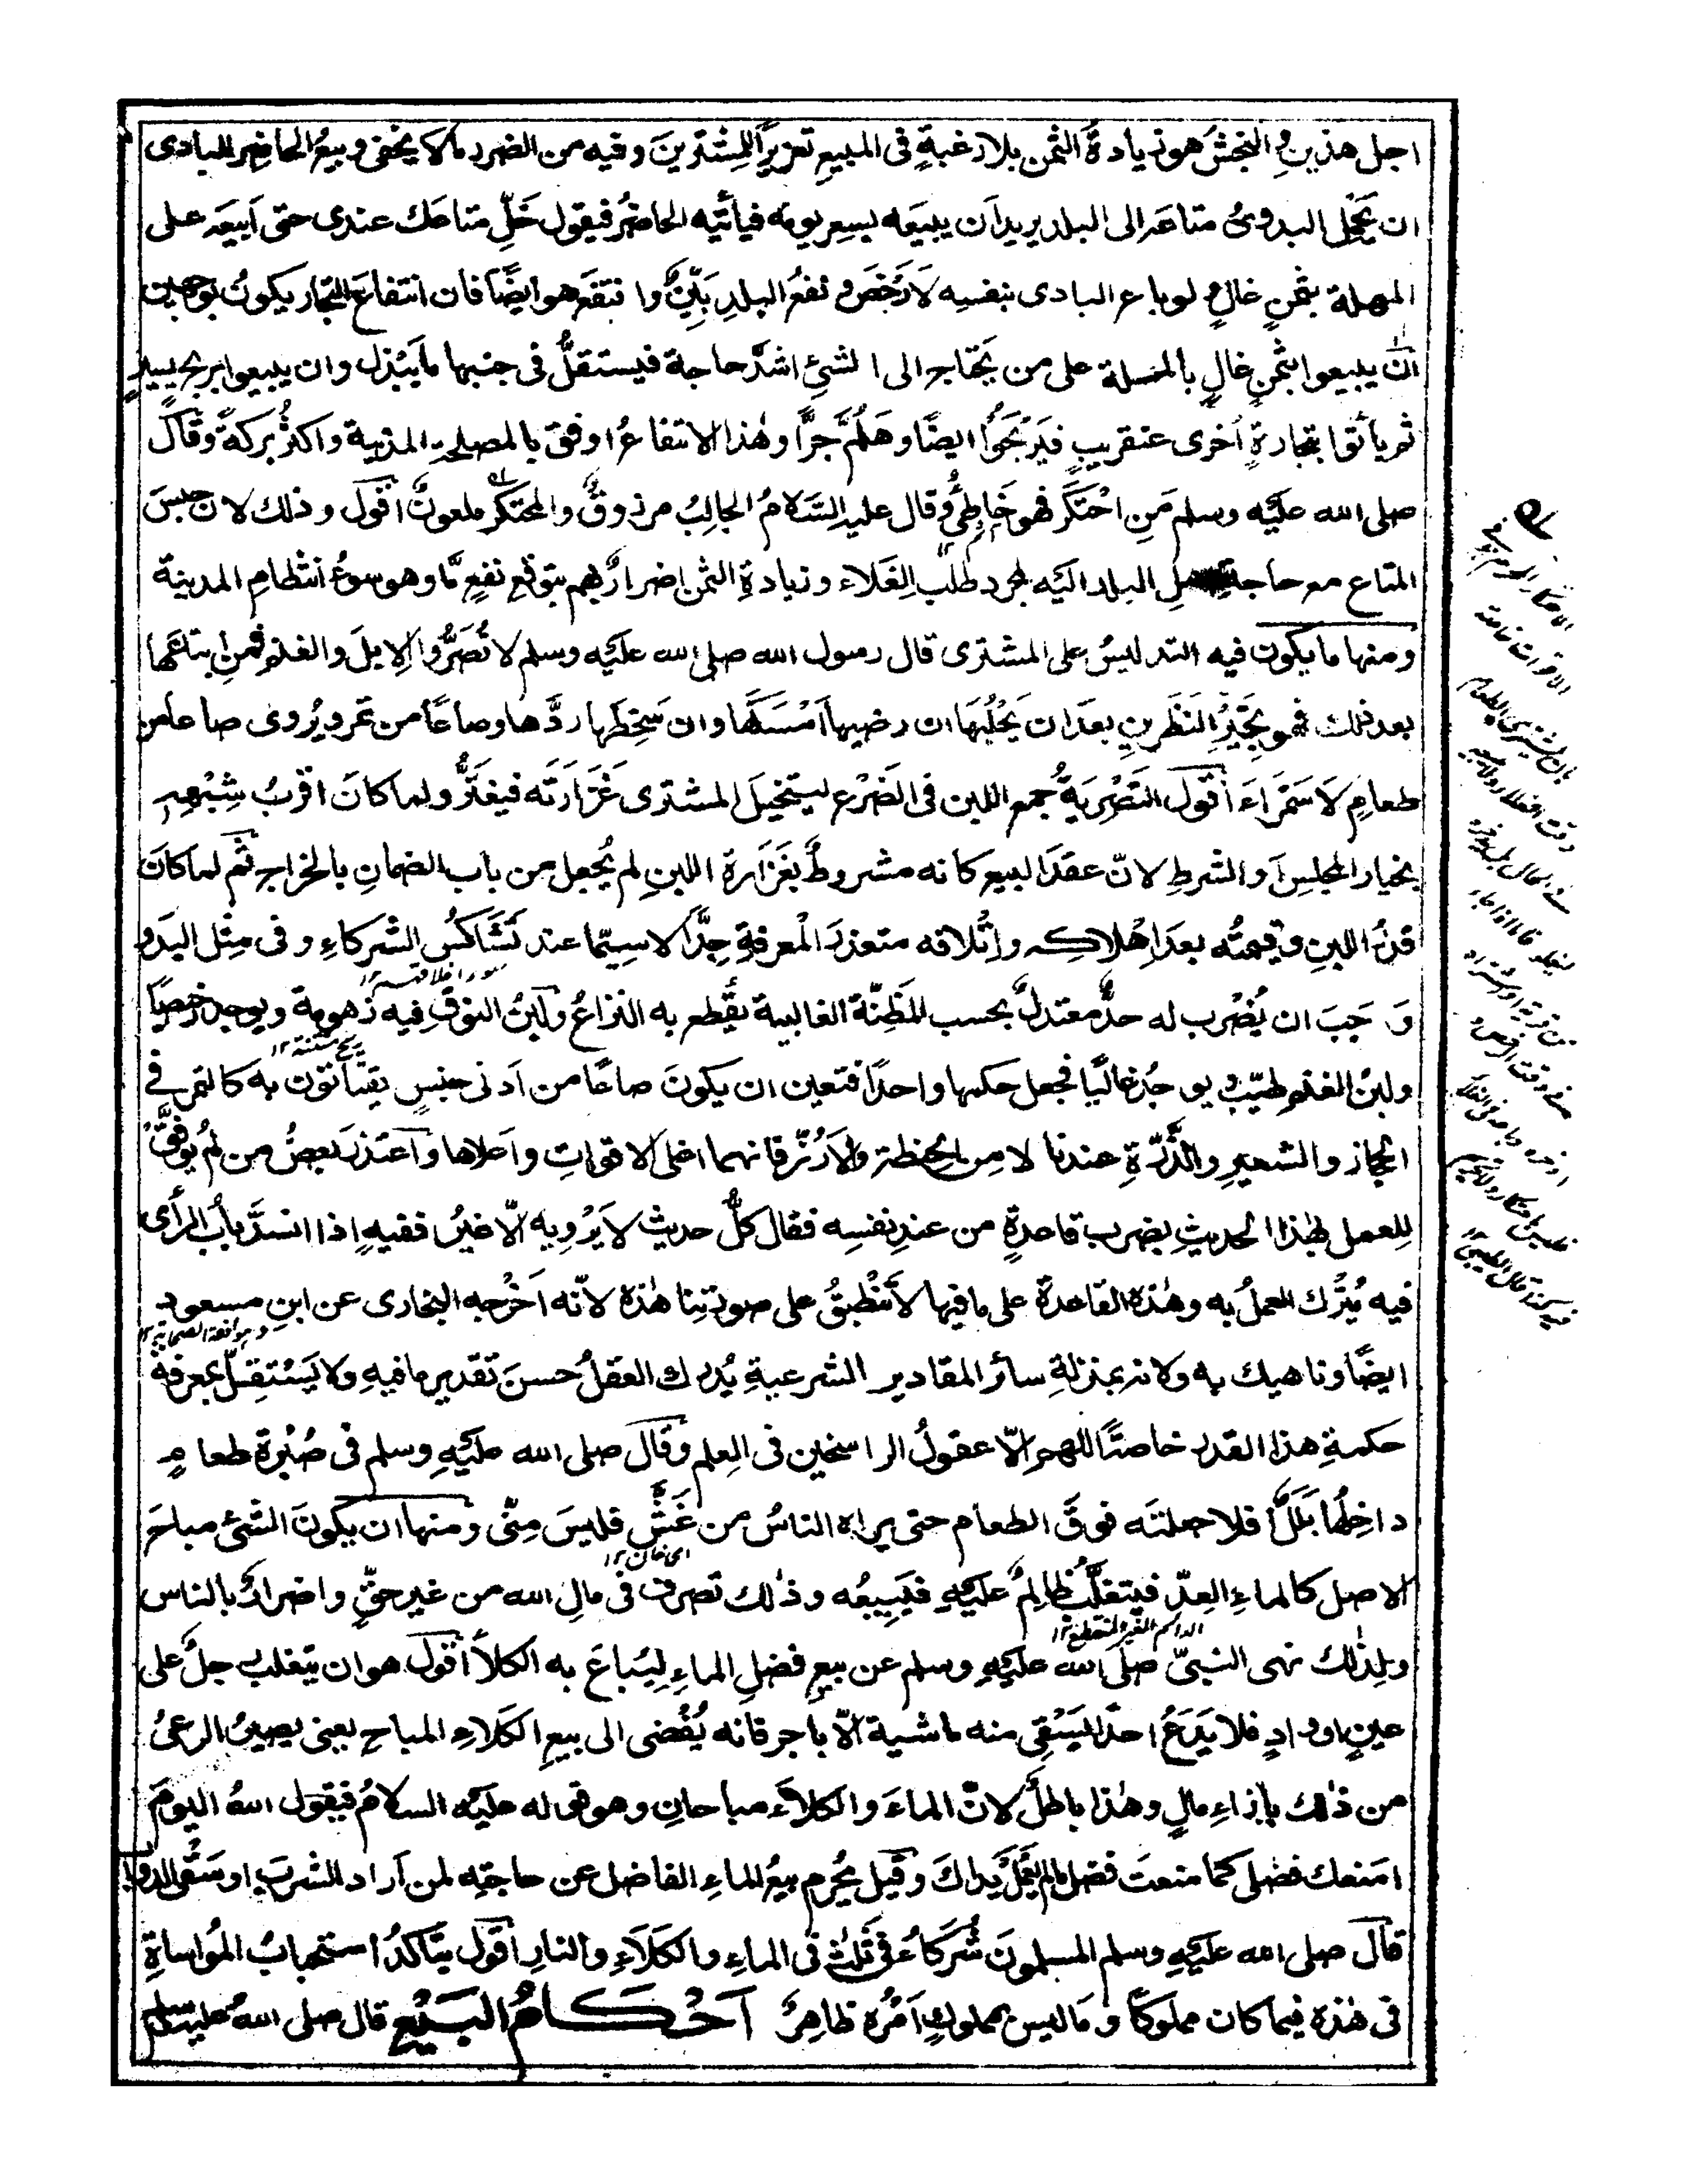 اجل هذين و النجش هو زيادة الثمن بلا رغبة فى المبيع تغريرًا للمشترين وفيه من الضرر ما لا يخفى وبيع الحاضر للبادى
ان يحمل البدوى متاعه الى البلد يريد ان يبيعه بسعر يومه فيأتيه الحاضر فيقول خلّ متاعك عندى حتى ابيعه على
المهلة بثمن غالٍ ولو باع البادى بنفسه لارخص و نفع البلديين وانتفع هو ايضًا فان انتفاع التجار يكون بوجهين
ان يبيعوا بثمن غالٍ بالمهلة على من يحتاج الى الشئ اشدّ حاجة فيستقلّ فى جنبها ما يبذل وان يبيعوا بربح يسير
ثم يأتوا بتجارةٍ اُخرى عنقريبٍ فيربحوا ايضًا وهلمّ جرًّا وهٰذا الانتفاع اوفق بالمصلحة المدنية واكثرُ بركةً وقال
صلى الله عليه وسلم مَنِ احْتَكَرَ فهو خَاطِئٌ وقال عليه السلامُ الجالِبُ مرزوقٌ والمحتكرُ ملعونٌ اقول وذلك لان حبس
المتاع مع حاجة اهلِ البلد اليه لمجرد طلب الغلاء وزيادة الثمن اضرارٌ بهم بتوقع نفعٍ مّا وهو سوءُ انتظامِ المدينة
ومنها ما يكون فيه التدليسُ على المشترى قال رسول الله صلى الله عليه وسلم لا تُصَرُّوا الابلَ والغنم فمن ابتاعها
بعد ذلك فهو بخَيْرِ النَظَرينِ بعد ان يَحْلُبَهَا ان رضيها اَمْسَكَهَا وان سَخِطَها ردَّها وصاعًا من تمر ويُروى صاعا من
طعامٍ لا سَمْرَاءَ اقول التَصْرِيَةُ جمع اللبن فى الضَرْع ليتخيل المشترى غَزَارَتَه فيغترُّ ولما كانَ اقربُ شِبْهِه
بخيار المجلسِ او الشرطِ لانّ عقدَ البيع كانه مشروطٌ بغَزَارة اللبنِ لم يُجعل من باب الضمانِ بالخراج ثم لما كانَ
قدرُ اللبنِ وقيمتُه بعد اِهْلاكه واِتْلافه متعذرَ الْمعرفةِ جِدًّا لا سيّما عند تَشَاكُسِ الشركاءِ وفى مِثْل البَدَو
سوء اخلاقهم ١٢
وَجَبَ ان يُضْرب له حدٌّ معتدلٌ بحسب المَظِنّة الغالبية يُقطع به النزاعُ ولَبَنُ النوقِ فيه زُهومة ويوجد رخيصًا
ريح منتنة ١٢
ولبنُ الغنم طيّب ويوجُد غاليًا فجعل حكمها واحدًا فتعين ان يكونَ صاعًا من اَدنى جنسٍ يقتاتون به كالتمر فى
الحجاز والشعيرِ والذُّرَةِ عندنا لا مِنَ الحِنطة والاَرُزّ فانهما اغلى الاقواتِ واَعلاها واعتذرَ بعضُ من لم يُوفَّق
لِلعمل بهٰذا الحديثِ بضرب قاعدةٍ من عندِ نفسِه فقال كلُّ حديث لا يَرْوِيه الّا غيرُ فقيهٍ اذا انسدَّ بابُ الرأى
فيه يُتْرَك العملُ به وهٰذه القاعدةُ على ما فيها لا تنطبقُ على صورتِنا هٰذه لانّه اَخْرجه البخارى عن ابنِ مسعود
وموافقة الصحابة ١٢
ايضًا وناهيك به ولانه بمنزلة سائر المقادير الشرعيةِ يُدرك العقلُ حسنَ تقديرِ ما فيهِ ولا يَسْتقِلّ بمعرفة
حكمةِ هذا القدر خاصةً اللهم اِلّا عقولُ الراسخين فى العِلم وقال صلى الله عليهِ وسلم فى صُبْرة طعامٍ
داخِلُها بَلَلٌ أفلا جعلتَه فوقَ الطعام حتى يراه الناسُ من غَشّ فليسَ مِنّى ومنها ان يكونَ الشئ مباحَ
اى خان ١٢
الاصل كالماءِ العِدّ فيتغلّبُ ظالِمٌ عليهِ فيَبيعُه وذلك تصرف فى مالِ الله من غيرِ حقٍّ واضرارٌ بالناس
الدائم الغير المنقطع ١٢
ولِذلك نهى النبىّ صلى الله عليهِ وسلم عن بيعِ فضلِ الماءِ لِيُباعَ به الكلأُ اقول هو ان يتغلب رجلٌ على
عينٍ او وادٍ فلا يَدَعُ احدًا يَسْقى منه ماشيةً اِلّا باجر فانه يُفْضى الى بيعِ الكَلاءِ المباح يعنى يصير الرعىُ
من ذلك بازاءِ مالٍ وهٰذا باطلٌ لانّ الماءَ والكلاَء مباحانِ وهو قوله عليه السلامُ فيقول اللهُ اليومَ
امنعك فضلى كما منعتَ فضل مالم تعمَلْ يداكَ وقيل يُحرم بيعُ الماءِ الفاضلِ عن حاجتِه لمن اراد الشرب او سَقْى الدواب
قال صلى الله عليهِ وسلم المسلمونَ شُرَكَاءُ فى ثَلٰثٍ فى الماءِ والكَلَاءِ والنارِ اقول يتأكدُ استحبابُ المُواساةِ
فى هٰذه فيما كان مملوكًا ومَا ليس بمملوكٍ اَمْرُه ظاهِرٌ اَحْكَامُ البَيْعِ قال صلى اللهُ عليه وسلم